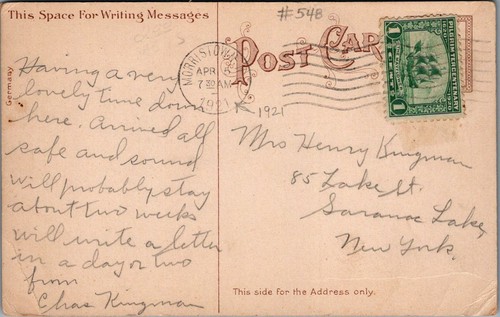 This Space For Writing Messages
#548
Germany
POST CARD
MORRISTOWN
APR
7 30 AM
1921
1921
PILGRIM TERCENTENARY
1620
1920
1
1
Having a very
lovely time down
here. Arrived all
safe and sound
will probably stay
about two weeks
will write a letter
in a day or two
from
Chas Kingman
Mrs Henry Kingman
85 Lake St.
Saranac Lake,
New York.
This side for the Address only.